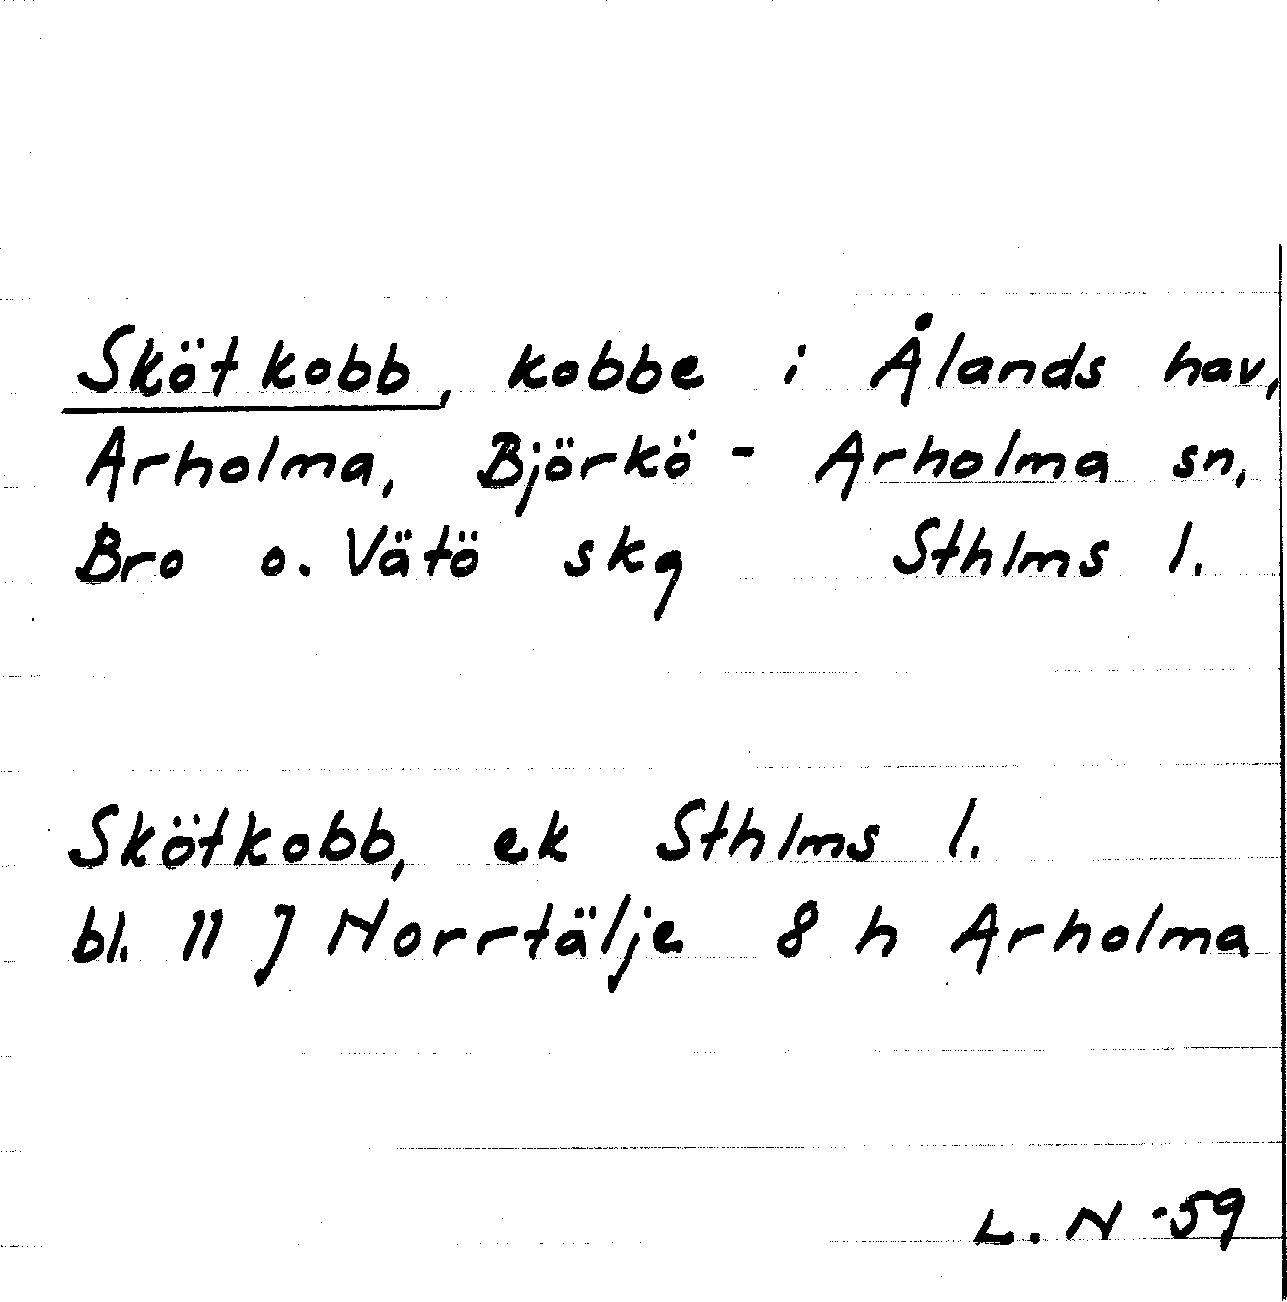 Skötkobb, kobbe i Ålands hav,
Arholma, Björkö - Arholma sn,
Bro o. Vätö skg Sthlms l.
Skötkobb, ek Sthlms l.
bl. 11 J Norrtälje 8 h Arholma
L. N -59